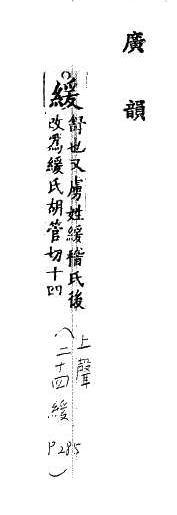 廣韻
緩
舒也又虜姓緩稽氏後
改爲緩氏胡管切十四
上聲
(二十四緩 P285)